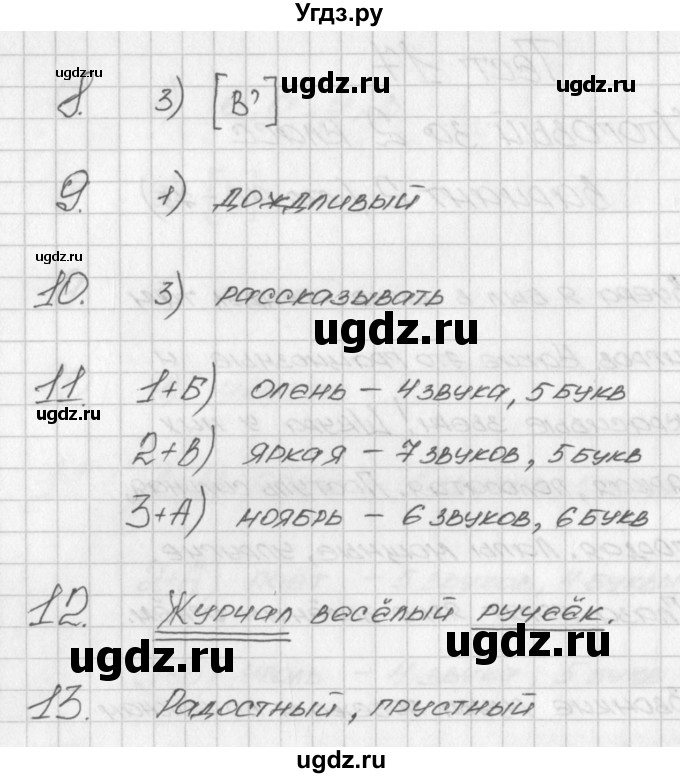 Угдз.ру
ugdz.ru
8. 3) [В'] ugdz.ru
9. 1) дождливый
ugdz.ru
10. 3) рассказывать
ugdz.ru
11. 1+Б) олень – 4 звука, 5 букв
ugdz.ru
2+В) яркая – 7 звуков, 5 букв
3+А) ноябрь – 6 звуков, 6 букв
12. Журчал весёлый ручеёк.
ugdz.ru ugdz.ru
13. Радостный, грустный
ugdz.ru